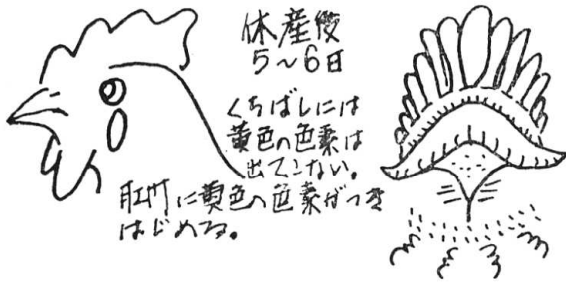 休産後
5〜6日
くちばしには
黄色の色素は
出てこない。
肛門に黄色の色素がつき
はじめる。